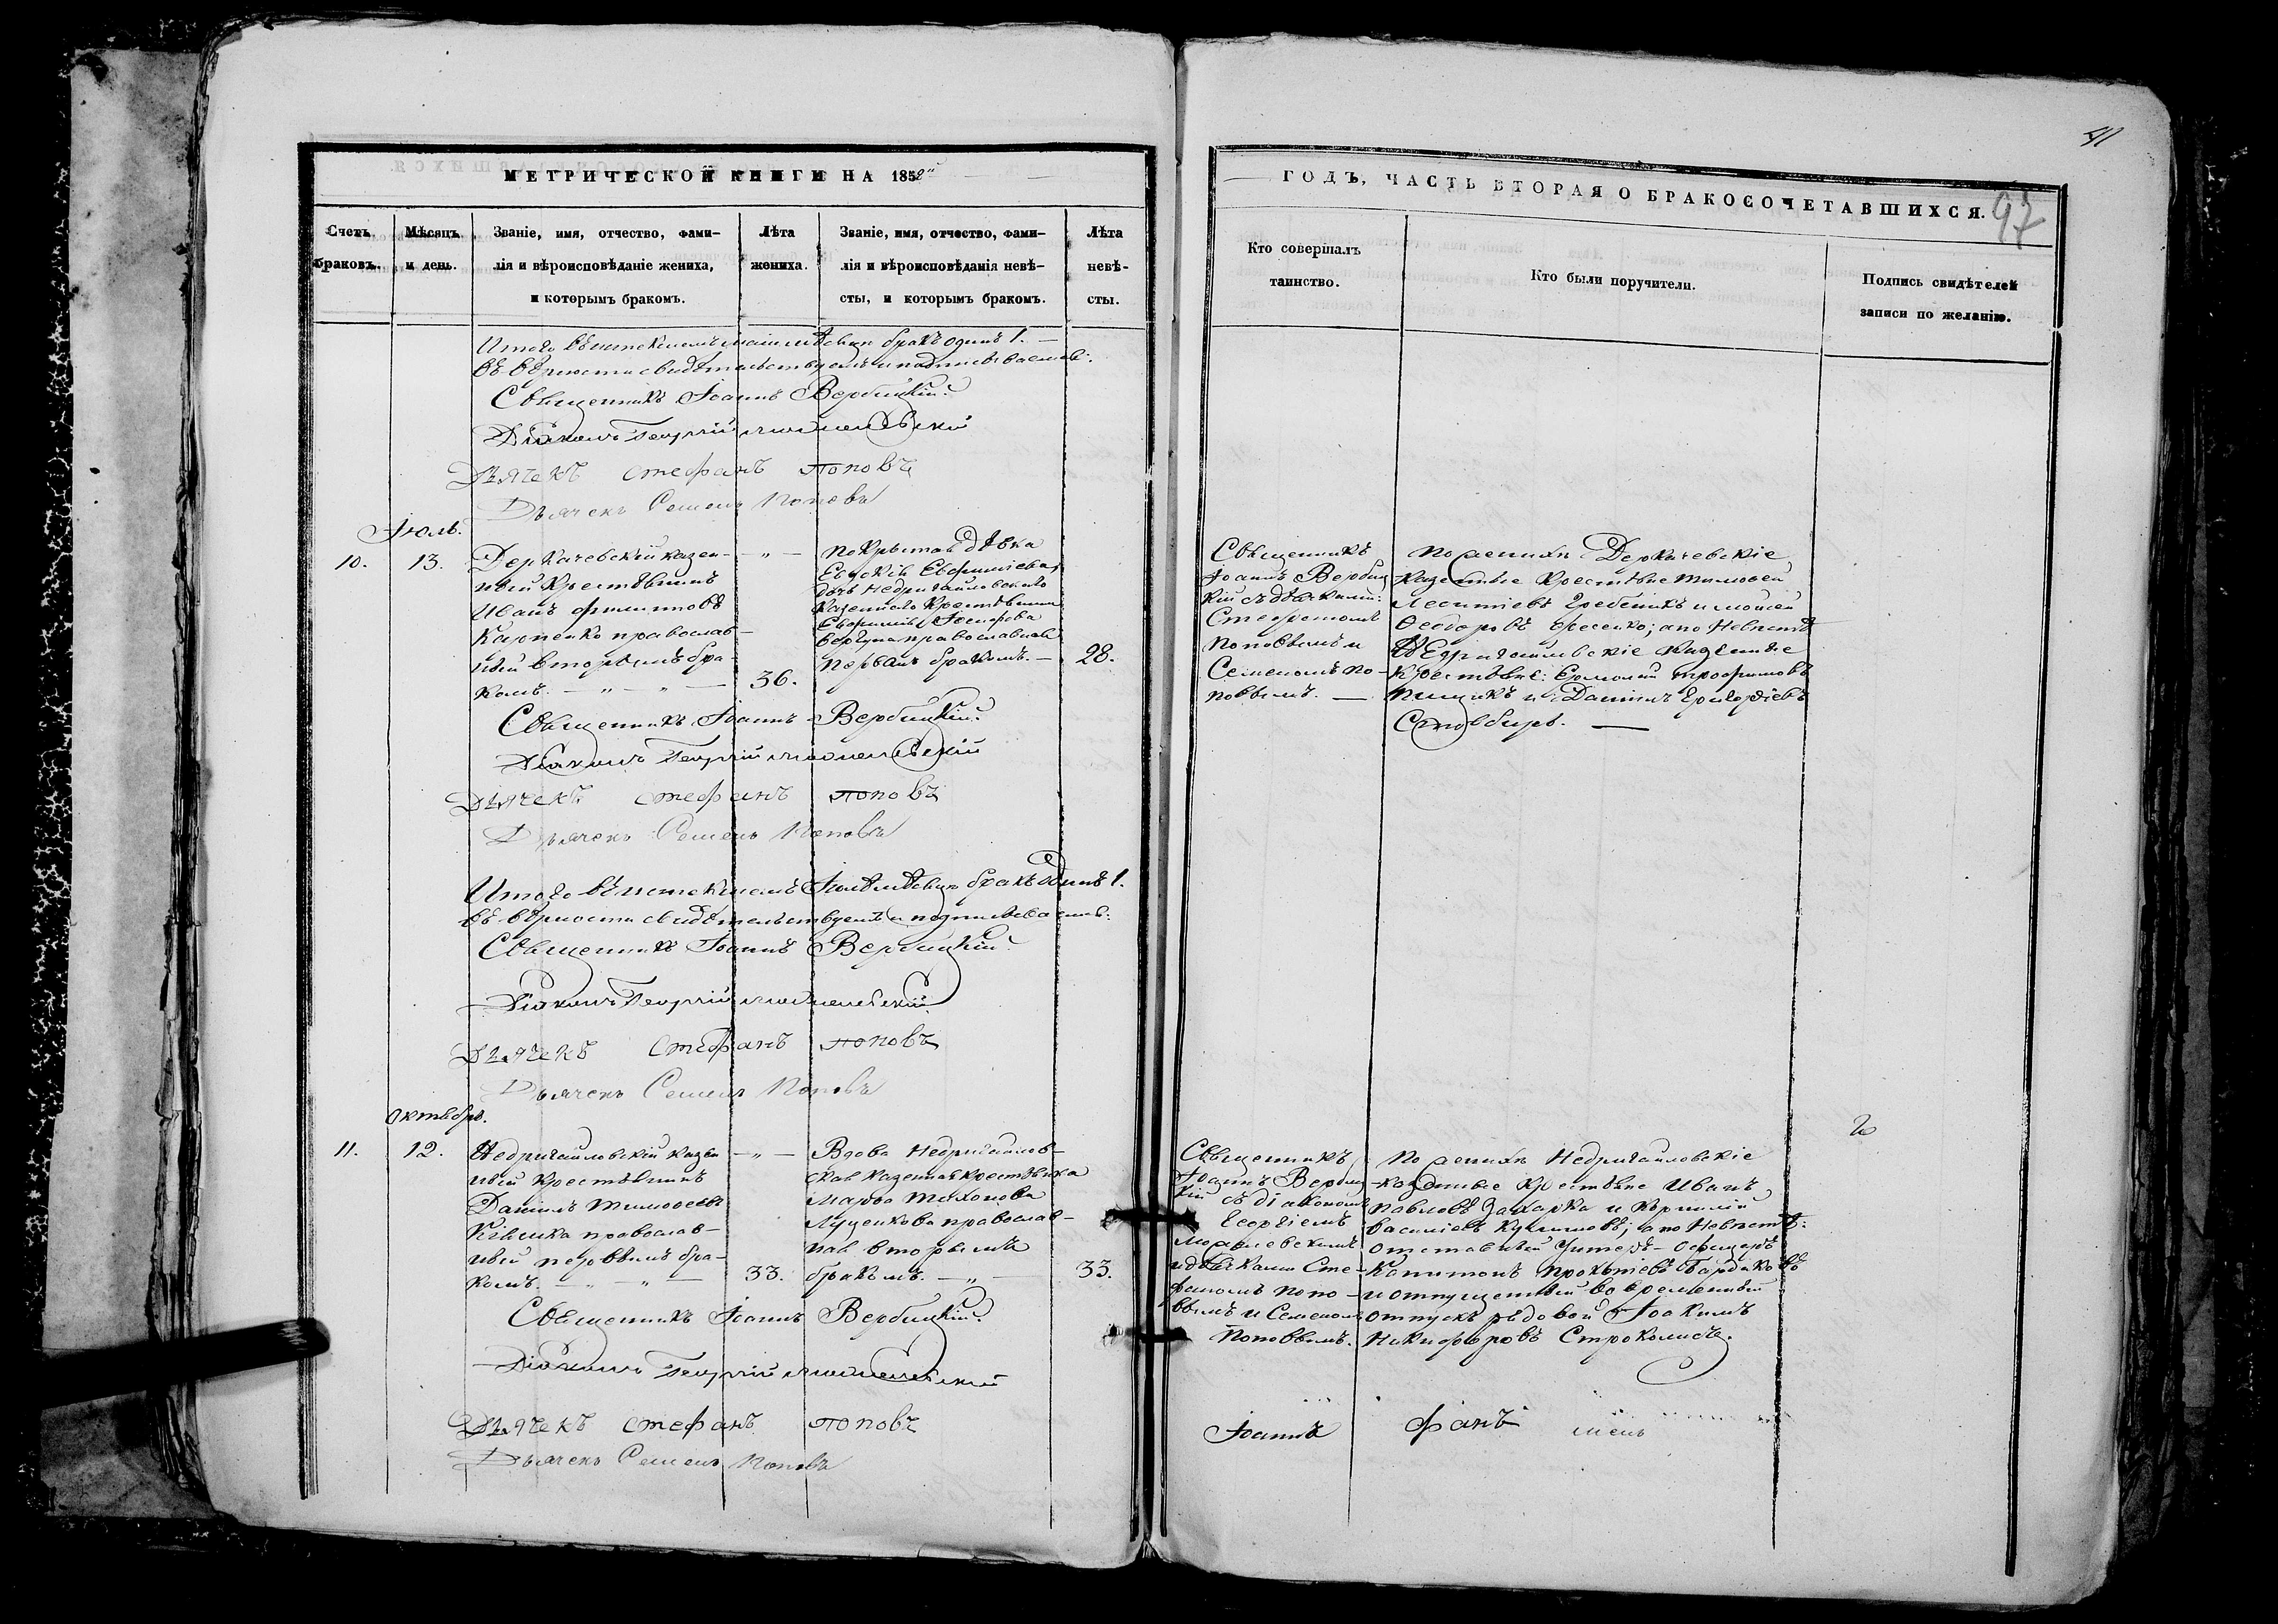 МЕТРИЧЕСКОЙ КНИГИ НА 1852
Счетъ браковъ.
Мѣсяцъ и день.
Званіе, имя, отчество, фами-
лія и вѣроисповѣданіе жениха,
и которымъ бракомъ.
Лѣта жениха.
Званіе, имя, отчество, фами-
лія и вѣроисповѣданія невѣ-
сты, и которымъ бракомъ.
Лѣта невѣ-
сты.
Итого въ истекшемъ маіи мѣсяцѣ бракъ одинъ 1. —
въ вѣрности свидѣтельствуемъ и подписываемъ:
Священникъ Іоаннъ Вербицкій
Діаконъ Георгій
Дьячекъ Стефанъ Поповъ
Дьячекъ Семенъ Поповъ
Іюль.
10.
13.
Деркачевскій казен-
ный крестьянинъ
Иванъ Филиповъ
Карпенко православ-
ный вторымъ бра-
комъ.
36.
дѣвка
дочь Недригайловскаго
казеннаго крестьянина
православная
первымъ бракомъ. —
28.
Священникъ Іоаннъ Вербицкій
Діаконъ Георгій
Дьячекъ Стефанъ Поповъ
Дьячекъ Семенъ Поповъ
Итого въ истекшемъ Іюлѣ мѣсяцѣ бракъ одинъ 1.
въ вѣрности свидѣтельствуемъ и подписываемъ:
Священникъ Іоаннъ Вербицкій
Діаконъ Георгій
Дьячекъ Стефанъ Поповъ
Дьячекъ Семенъ Поповъ
Октябрь.
11.
12.
Недригайловскій казен
ный крестьянинъ
Даніилъ Тимофеевъ
православ-
ный первымъ бра-
комъ.
33.
Вдова Недригайлов-
ская казенная крестьянка
Марфа Тихонова
Луценкова православ-
ная вторымъ
бракомъ.
33.
Священникъ Іоаннъ Вербицкій
Діаконъ Георгій
Дьячекъ Стефанъ Поповъ
Дьячекъ Семенъ Поповъ
ГОДЪ, ЧАСТЬ ВТОРАЯ О БРАКОСОЧЕТАВШИХСЯ.
97
Кто совершалъ
таинство.
Кто были поручители.
Подпись свидѣтелей
записи по желанію.
Священникъ
Іоаннъ Вербиц
кій съ дьячками:
Стефаномъ
Поповымъ и
Семеномъ По-
повымъ. —
По женихѣ Деркачевскіе
казенные крестьяне Тимофей
Леонтіевъ Гребеникъ и Моисей
Феодоровъ Фесенко; а по невѣстѣ
Недригайловскіе казенные
крестьяне: Ермолай Трофимовъ
и Даніилъ Григоріевъ
Стовбиръ. —
Священникъ
Іоаннъ Вербиц
кій съ діакономъ
Георгіемъ
и дьячками Сте-
фаномъ Попо-
вымъ и Семеномъ
Поповымъ.
По женихѣ Недригайловскіе
казенные крестьяне Иванъ
Павловъ Захарка и Корнилій
Василіевъ; а по невѣстѣ:
отставный Унтеръ-Офицеръ
Капитонъ Прокопіевъ
и отпущенный во временный
отпускъ рядовой Іоакимъ
Никифоровъ Строкалисъ.
Іоаннъ
фанъ
менъ